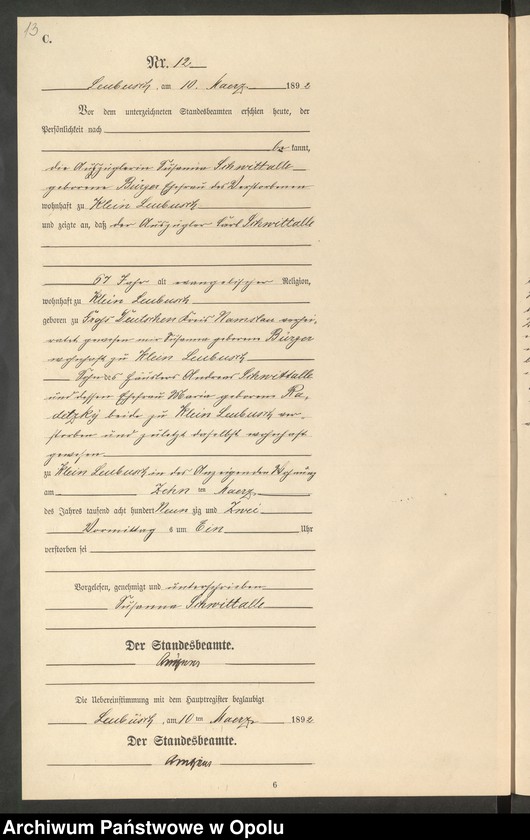 13
C.
Nr. 12
Leubusch, am 10. Maerz 1892
Vor dem unterzeichneten Standesbeamten erschien heute, der
Persönlichkeit nach
be kannt,
die Auszüglerin Susanna Schwittalle
geborene Bürger Ehefrau des Verstorbenen
wohnhaft zu Klein Leubusch
und zeigte an, daß der Auszügler Carl Schwittalle
67 Jahr alt evangelischer Religion,
wohnhaft zu Klein Leubusch
geboren zu Groß Deutschen Kreis Namslau verhei-
ratet gewesen mit Susanna geborene Bürger
wohnhaft zu Klein Leubusch
Sohn des Häuslers Andreas Schwittalle
und dessen Ehefrau Maria geborene Ra-
ditzky beide zu Klein Leubusch ver-
storben und zuletzt daselbst wohnhaft
gewesen
zu Klein Leubusch in des Anzeigenden Wohnung
am Zehn ten Maerz
des Jahres tausend acht hundert Neun zig und Zwei
Vormittag s um Ein Uhr
verstorben sei
Vorgelesen, genehmigt und unterschrieben
Susanna Schwittalle
Der Standesbeamte.
Die Uebereinstimmung mit dem Hauptregister beglaubigt
Leubusch, am 10 ten Maerz 1892
Der Standesbeamte.
6
Archiwum Państwowe w Opolu